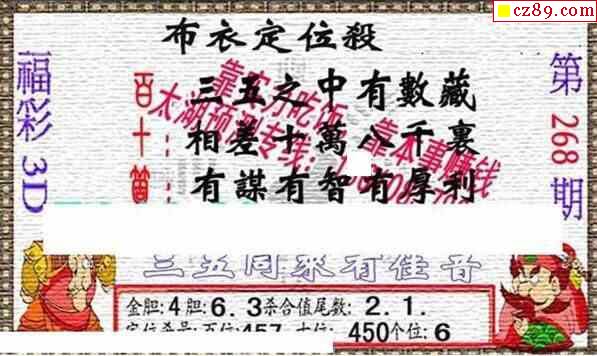 cz89.com
布衣定位殺
福彩3D
第268期
三五之中有數藏
相差十萬八千裏
有謀有智有厚利
百十
靠本事賺钱
太湖预测专线:
三五同来有佳音
金胆:4胆:6.3杀合值尾数:2.1.
定位杀号:百位457 十位 450个位:6